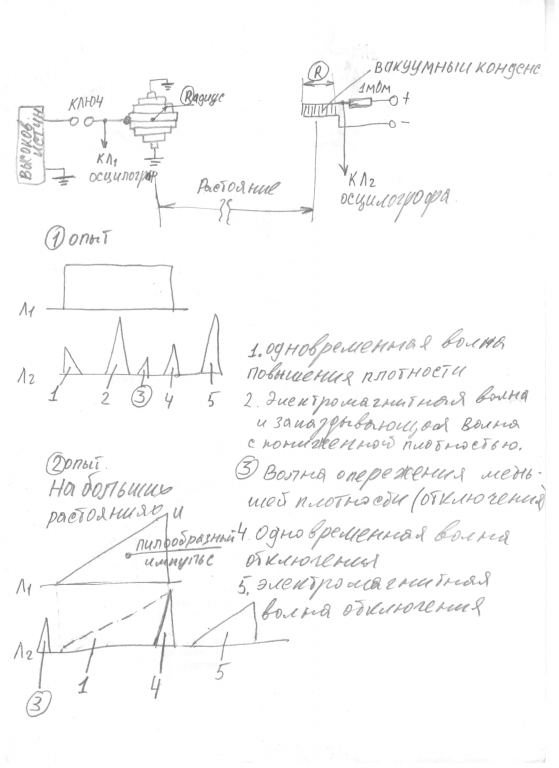 R
ВАКУУМНЫЙ КОНДЕНС
1МОм
+
КЛЮЧ
Rадиус
−
ВЫСОКОВ.
ИСТОЧН
КЛ1
осцилограф
Растояние
КЛ2
осцилографа.
1 опыт
Л1
Л2
1
2
3
4
5
1. одновременная волна
повышения плотности
2. Электромагнитная волна
и запаздывающая волна
с пониженной плотностью.
3 Волна опережения мень-
шей плотности (отключения)
4. Одновременная волна
отключения
5. электромагнитная
волна отключения
2 опыт.
На больших
растояниях
и
пилообразный
импульс
Л1
Л2
3
1
4
5